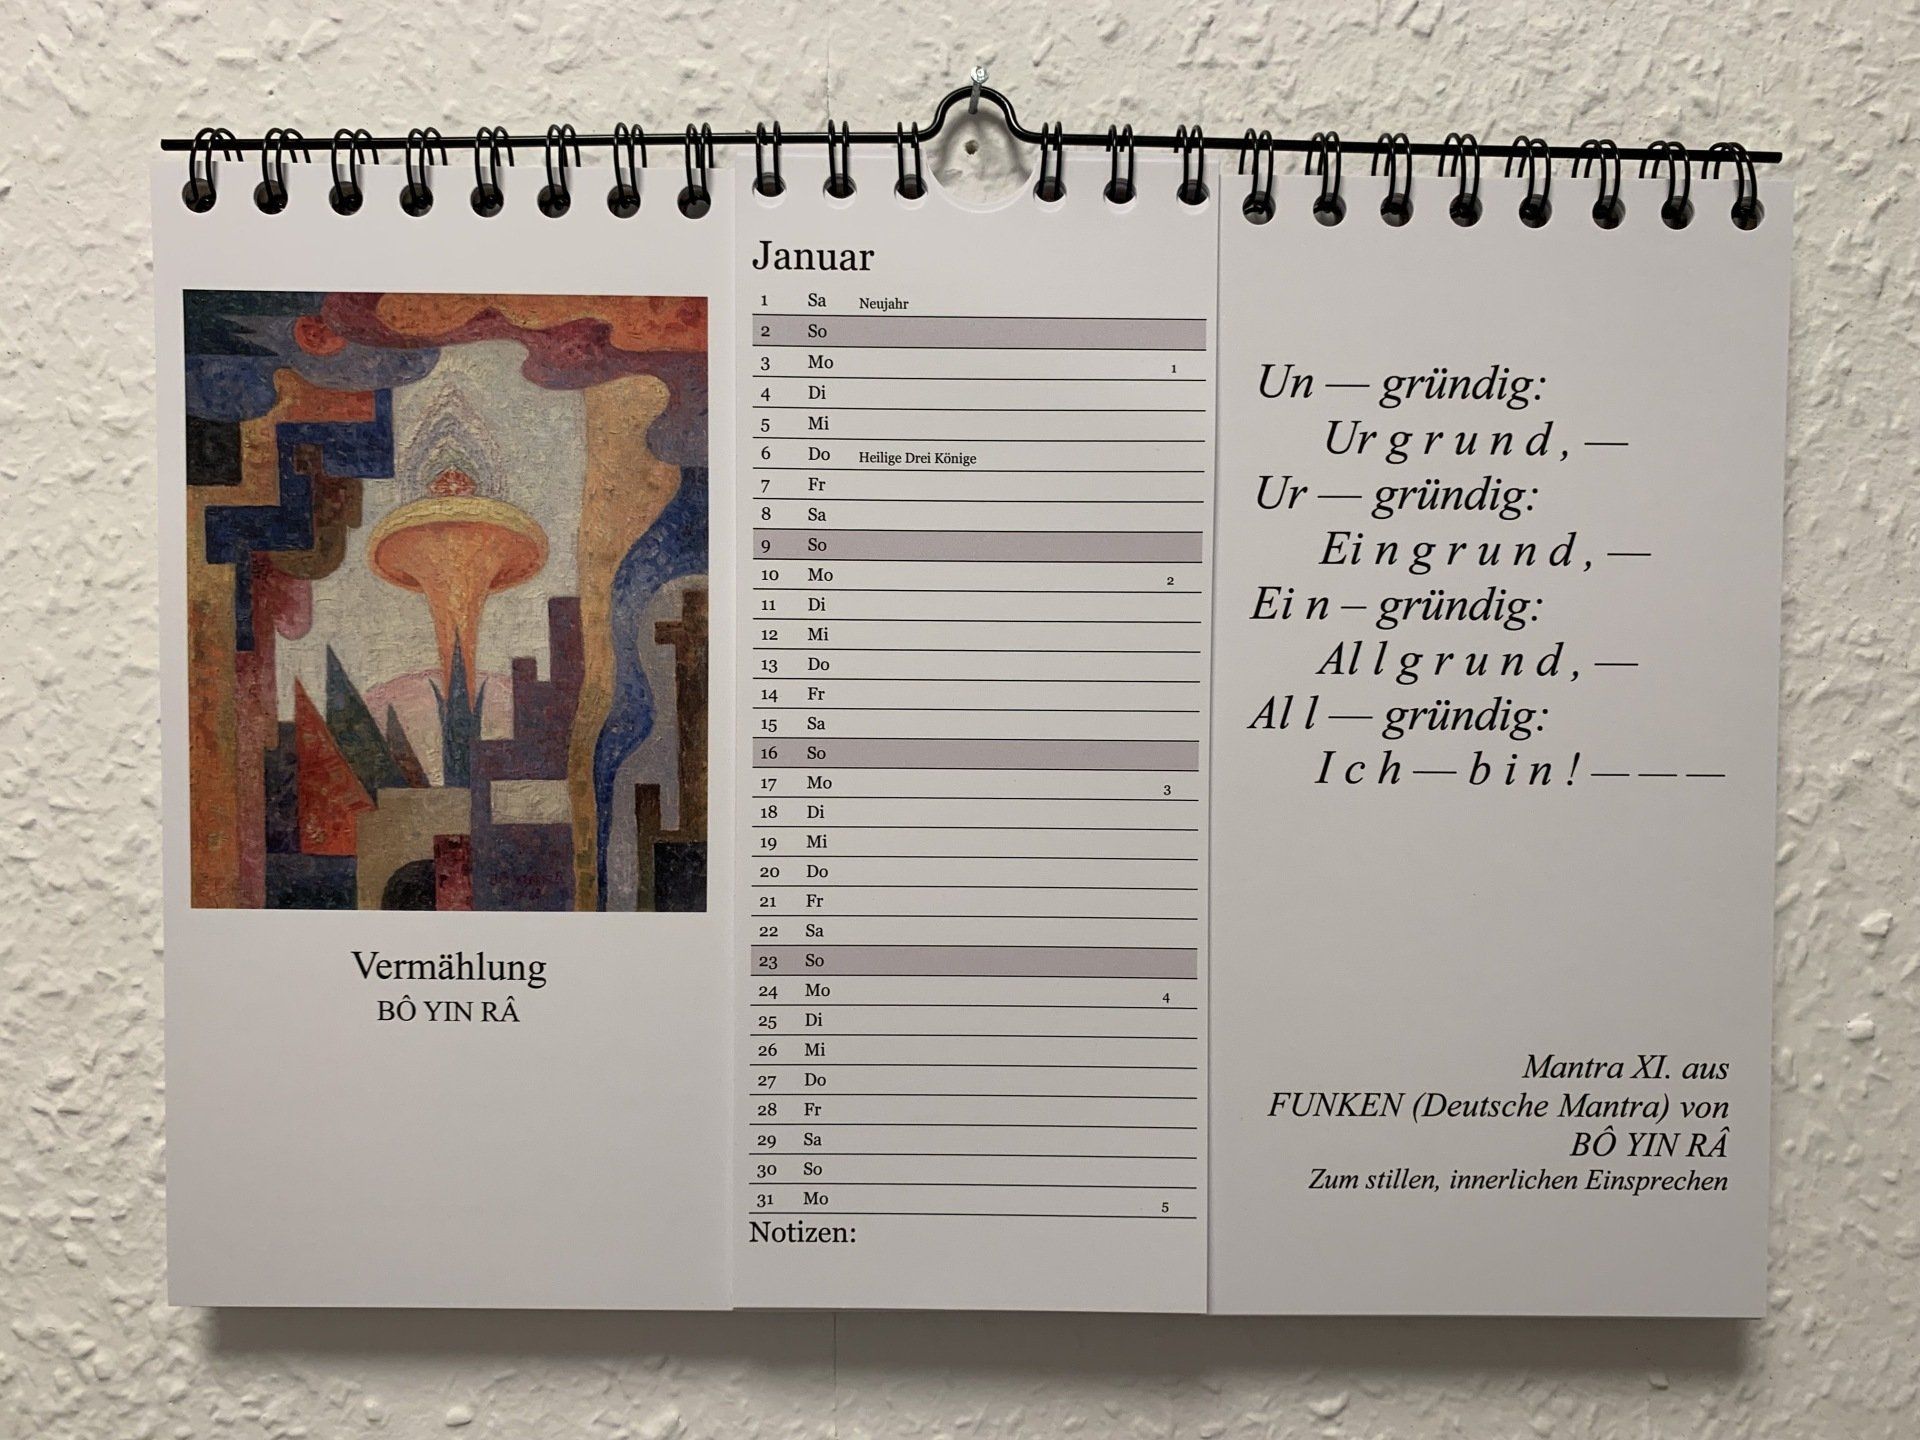 Vermählung
BÔ YIN RÂ
Januar
1 Sa Neujahr
2 So
3 Mo 1
4 Di
5 Mi
6 Do Heilige Drei Könige
7 Fr
8 Sa
9 So
10 Mo 2
11 Di
12 Mi
13 Do
14 Fr
15 Sa
16 So
17 Mo 3
18 Di
19 Mi
20 Do
21 Fr
22 Sa
23 So
24 Mo 4
25 Di
26 Mi
27 Do
28 Fr
29 Sa
30 So
31 Mo 5
Notizen:
Un — gründig:
Ur g r u n d , —
Ur — gründig:
Ei n g r u n d , —
Ei n – gründig:
Al l g r u n d , —
Al l — gründig:
I c h — b i n ! — — —
Mantra XI. aus
FUNKEN (Deutsche Mantra) von
BÔ YIN RÂ
Zum stillen, innerlichen Einsprechen